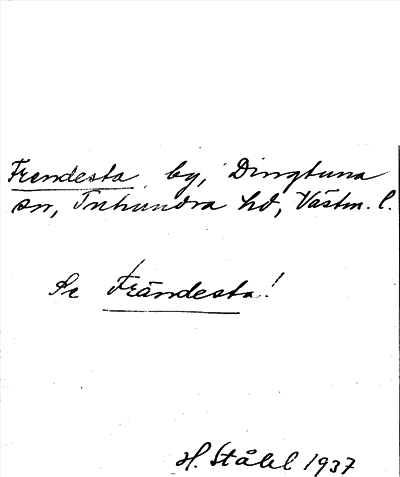 Frendesta, by, Dingtuna
sn, Tuhundra hd, Västm. l.
Se Frändesta!
H. Ståhl 1937